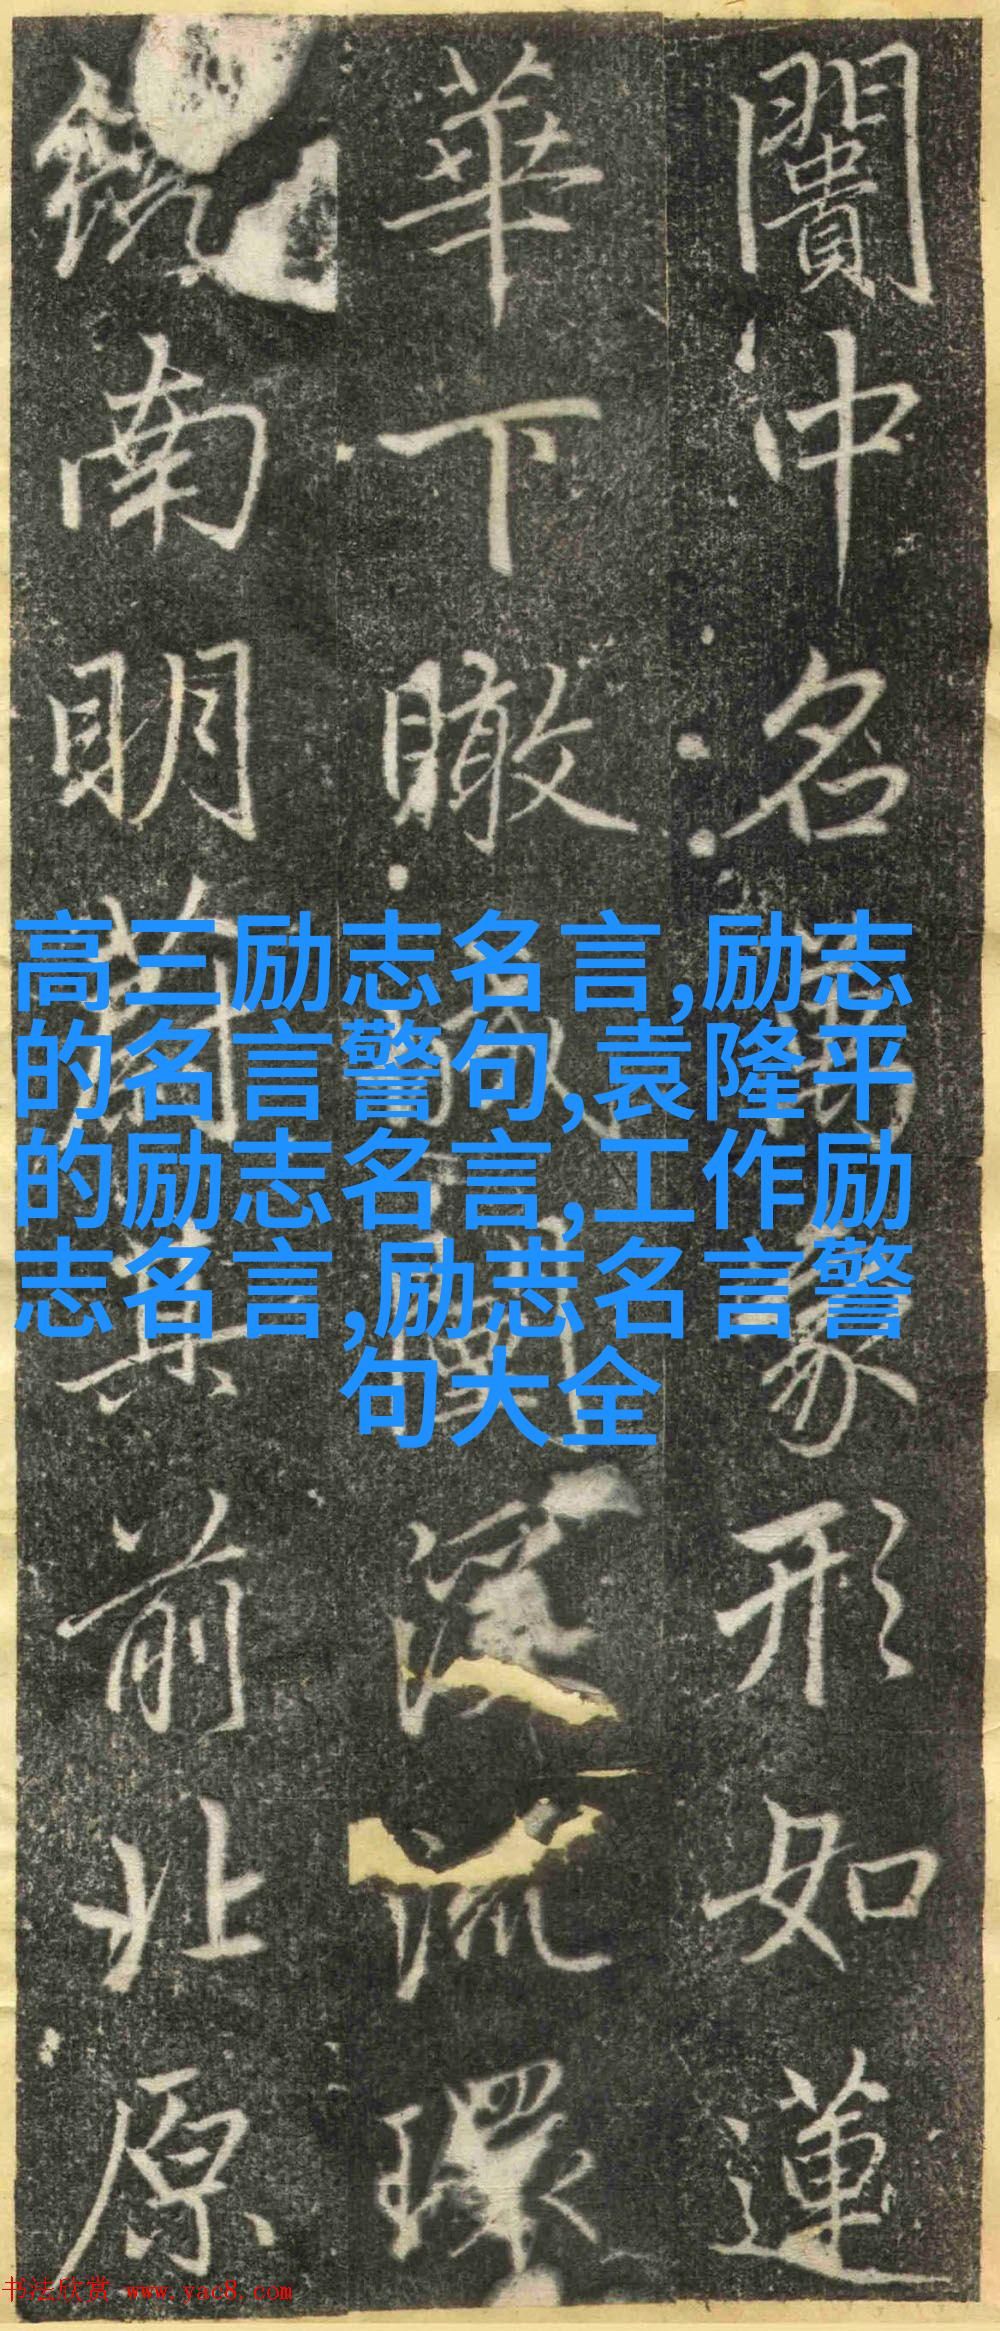 闠中名形如蓮
華下瞰深流環
南明其前北原
高三励志名言,励志
的名言警句,袁隆平
的励志名言,工作励
志名言,励志名言警
句大全
书法欣赏 www.yac8.com